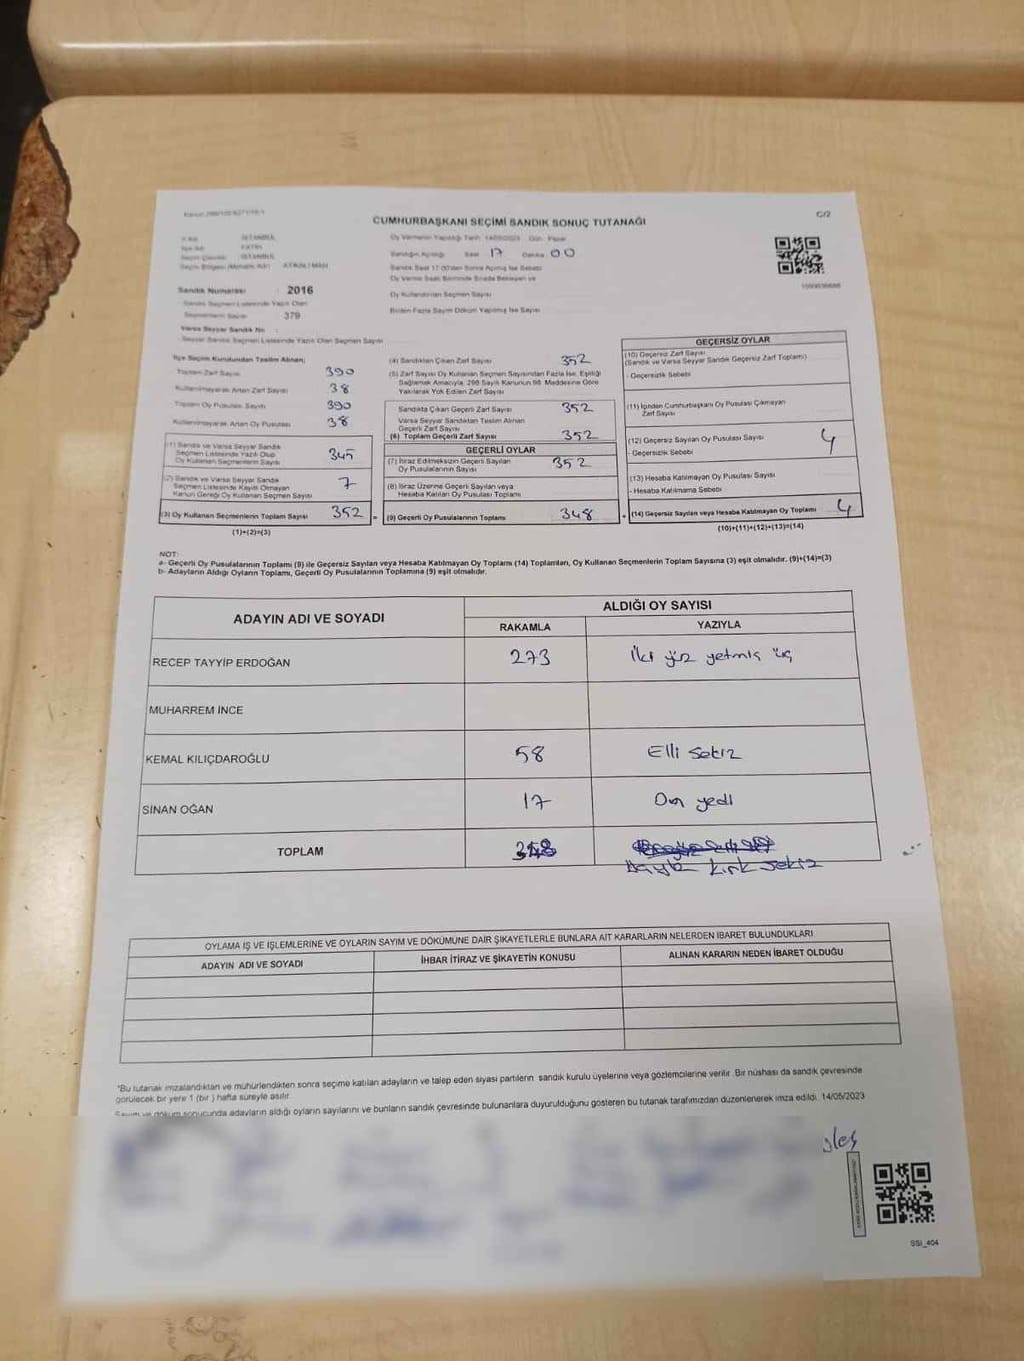 C/2
CUMHURBAŞKANI SEÇİMİ SANDIK SONUÇ TUTANAĞI
İSTANBUL
FATİH
İSTANBUL
Oy Vermenin Yapıldığı Tarih 14/05/2023 Gün Pazar
Sandığın Açıldığı Saat 17 Dakika 00
Sandık Saat 17.00'den Sonra Açılmış İse Sebebi
Oy Verme Saati Bitiminde Sırada Bekleyen ve
Oy Kullandırılan Seçmen Sayısı
Birden Fazla Sayım Döküm Yapılmış İse Sayısı
Sandık Numarası : 2016
Sandık Seçmen Listesinde Yazılı Olan
Seçmenlerin Sayısı : 379
Varsa Seyyar Sandık No :
Seyyar Sandık Seçmen Listesinde Yazılı Olan Seçmen Sayısı
İlçe Seçim Kurulundan Teslim Alınan;
Toplam Zarf Sayısı 390
Kullanılmayarak Artan Zarf Sayısı 38
Toplam Oy Pusulası Sayısı 390
Kullanılmayarak Artan Oy Pusulası 38
(1) Sandık ve Varsa Seyyar Sandık
Seçmen Listesinde Yazılı Olup
Oy Kullanan Seçmenlerin Sayısı 345
(2) Sandık ve Varsa Seyyar Sandık
Seçmen Listesinde Kayıtlı Olmayan
Kanun Gereği Oy Kullanan Seçmen Sayısı 7
(3) Oy Kullanan Seçmenlerin Toplam Sayısı 352
(1)+(2)=(3)
(4) Sandıktan Çıkan Zarf Sayısı 352
(5) Zarf Sayısı Oy Kullanan Seçmen Sayısından Fazla İse, Eşitliği
Sağlamak Amacıyla, 298 Sayılı Kanunun 98. Maddesine Göre
Yakılarak Yok Edilen Zarf Sayısı
Sandıkta Çıkan Geçerli Zarf Sayısı 352
Varsa Seyyar Sandıktan Teslim Alınan
Geçerli Zarf Sayısı
(6) Toplam Geçerli Zarf Sayısı 352
GEÇERLİ OYLAR
(7) İtiraz Edilmeksizin Geçerli Sayılan
Oy Pusulalarının Sayısı 352
(8) İtiraz Üzerine Geçerli Sayılan veya
Hesaba Katılan Oy Pusulası Toplamı
= (9) Geçerli Oy Pusulalarının Toplamı 348
GEÇERSİZ OYLAR
(10) Geçersiz Zarf Sayısı
(Sandık ve Varsa Seyyar Sandık Geçersiz Zarf Toplamı)
- Geçersizlik Sebebi
(11) İçinden Cumhurbaşkanı Oy Pusulası Çıkmayan
Zarf Sayısı
(12) Geçersiz Sayılan Oy Pusulası Sayısı 4
- Geçersizlik Sebebi
(13) Hesaba Katılmayan Oy Pusulası Sayısı
- Hesaba Katılmama Sebebi
+ (14) Geçersiz Sayılan veya Hesaba Katılmayan Oy Toplamı 4
(10)+(11)+(12)+(13)=(14)
NOT:
a- Geçerli Oy Pusulalarının Toplamı (9) ile Geçersiz Sayılan veya Hesaba Katılmayan Oy Toplamı (14) Toplamları, Oy Kullanan Seçmenlerin Toplam Sayısına (3) eşit olmalıdır. (9)+(14)=(3)
b- Adayların Aldığı Oyların Toplamı, Geçerli Oy Pusulalarının Toplamına (9) eşit olmalıdır.
ADAYIN ADI VE SOYADI ALDIĞI OY SAYISI
RAKAMLA YAZIYLA
RECEP TAYYİP ERDOĞAN 273 İki yüz yetmiş üç
MUHARREM İNCE
KEMAL KILIÇDAROĞLU 58 Elli sekiz
SİNAN OĞAN 17 On yedi
TOPLAM 348
kırk sekiz
OYLAMA İŞ VE İŞLEMLERİNE VE OYLARIN SAYIM VE DÖKÜMÜNE DAİR ŞİKAYETLERLE BUNLARA AİT KARARLARIN NELERDEN İBARET BULUNDUKLARI
ADAYIN ADI VE SOYADI İHBAR İTİRAZ VE ŞİKAYETİN KONUSU ALINAN KARARIN NEDEN İBARET OLDUĞU
*Bu tutanak imzalandıktan ve mühürlendikten sonra seçime katılan adayların ve talep eden siyasi partilerin sandık kurulu üyelerine veya gözlemcilerine verilir. Bir nüshası da sandık çevresinde
görülecek bir yere 1 (bir ) hafta süreyle asılır.
Sayım ve döküm sonucunda adayların aldığı oyların sayılarını ve bunların sandık çevresinde bulunanlara duyurulduğunu gösteren bu tutanak tarafımızdan düzenlenerek imza edildi. 14/05/2023
SSI_404